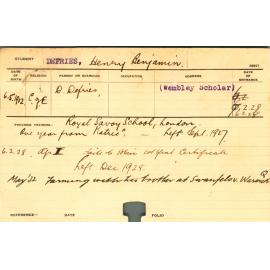 STUDENT DEFRIES, Henry Benjamin.
DATE OF BIRTH RELIGION PARENT OR GUARDIAN OCCUPATION ADDRESS
(Wembley Scholar)
6.5.12 C of E D Defries.
2.28
PREVIOUS TRAINING: Royal Savoy School, London
One year from "Patric" - Left Sept. 1927.
6.2.28 Age Fails to obtain Certificate
Left Dec 1928
May '32 Farming with his brother at Swanfels v. Warwick
REFERENCE:- DATE FOLIO